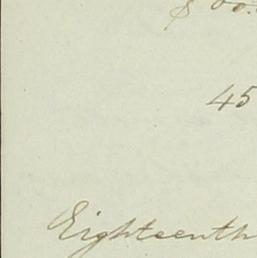 45
Eighteenth